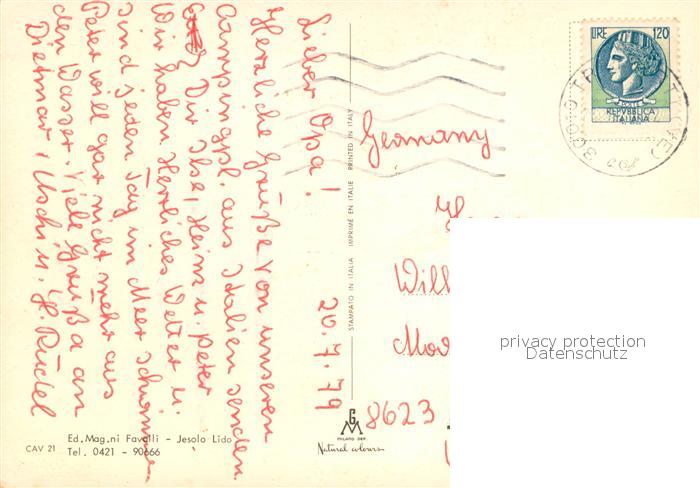 Lieber Opa! 20.7.79
Herzliche Grüße von unseren
Campingpl. aus Italien senden
Dir Ilse, Heinz u. Peter
Wir haben Herrliches Wetter u.
sind jeden Tag im Meer schwimmen
Peter will gar nicht mehr aus
den Wasser. Viele Grüße an
Dietmar, Uschi u. H. Rudel
Ed. Mag.ni Favalli - Jesolo Lido
CAV 21 Tel. 0421 - 90666
STAMPATO IN ITALIA IMPRIMÉ EN ITALIE PRINTED IN ITALY
GM
MILANO DEP.
Natural colours
LIRE 120
POSTE
REPVBBLICA
ITALIANA
30010
(VE)
Germany
Will
8623
privacy protection
Datenschutz